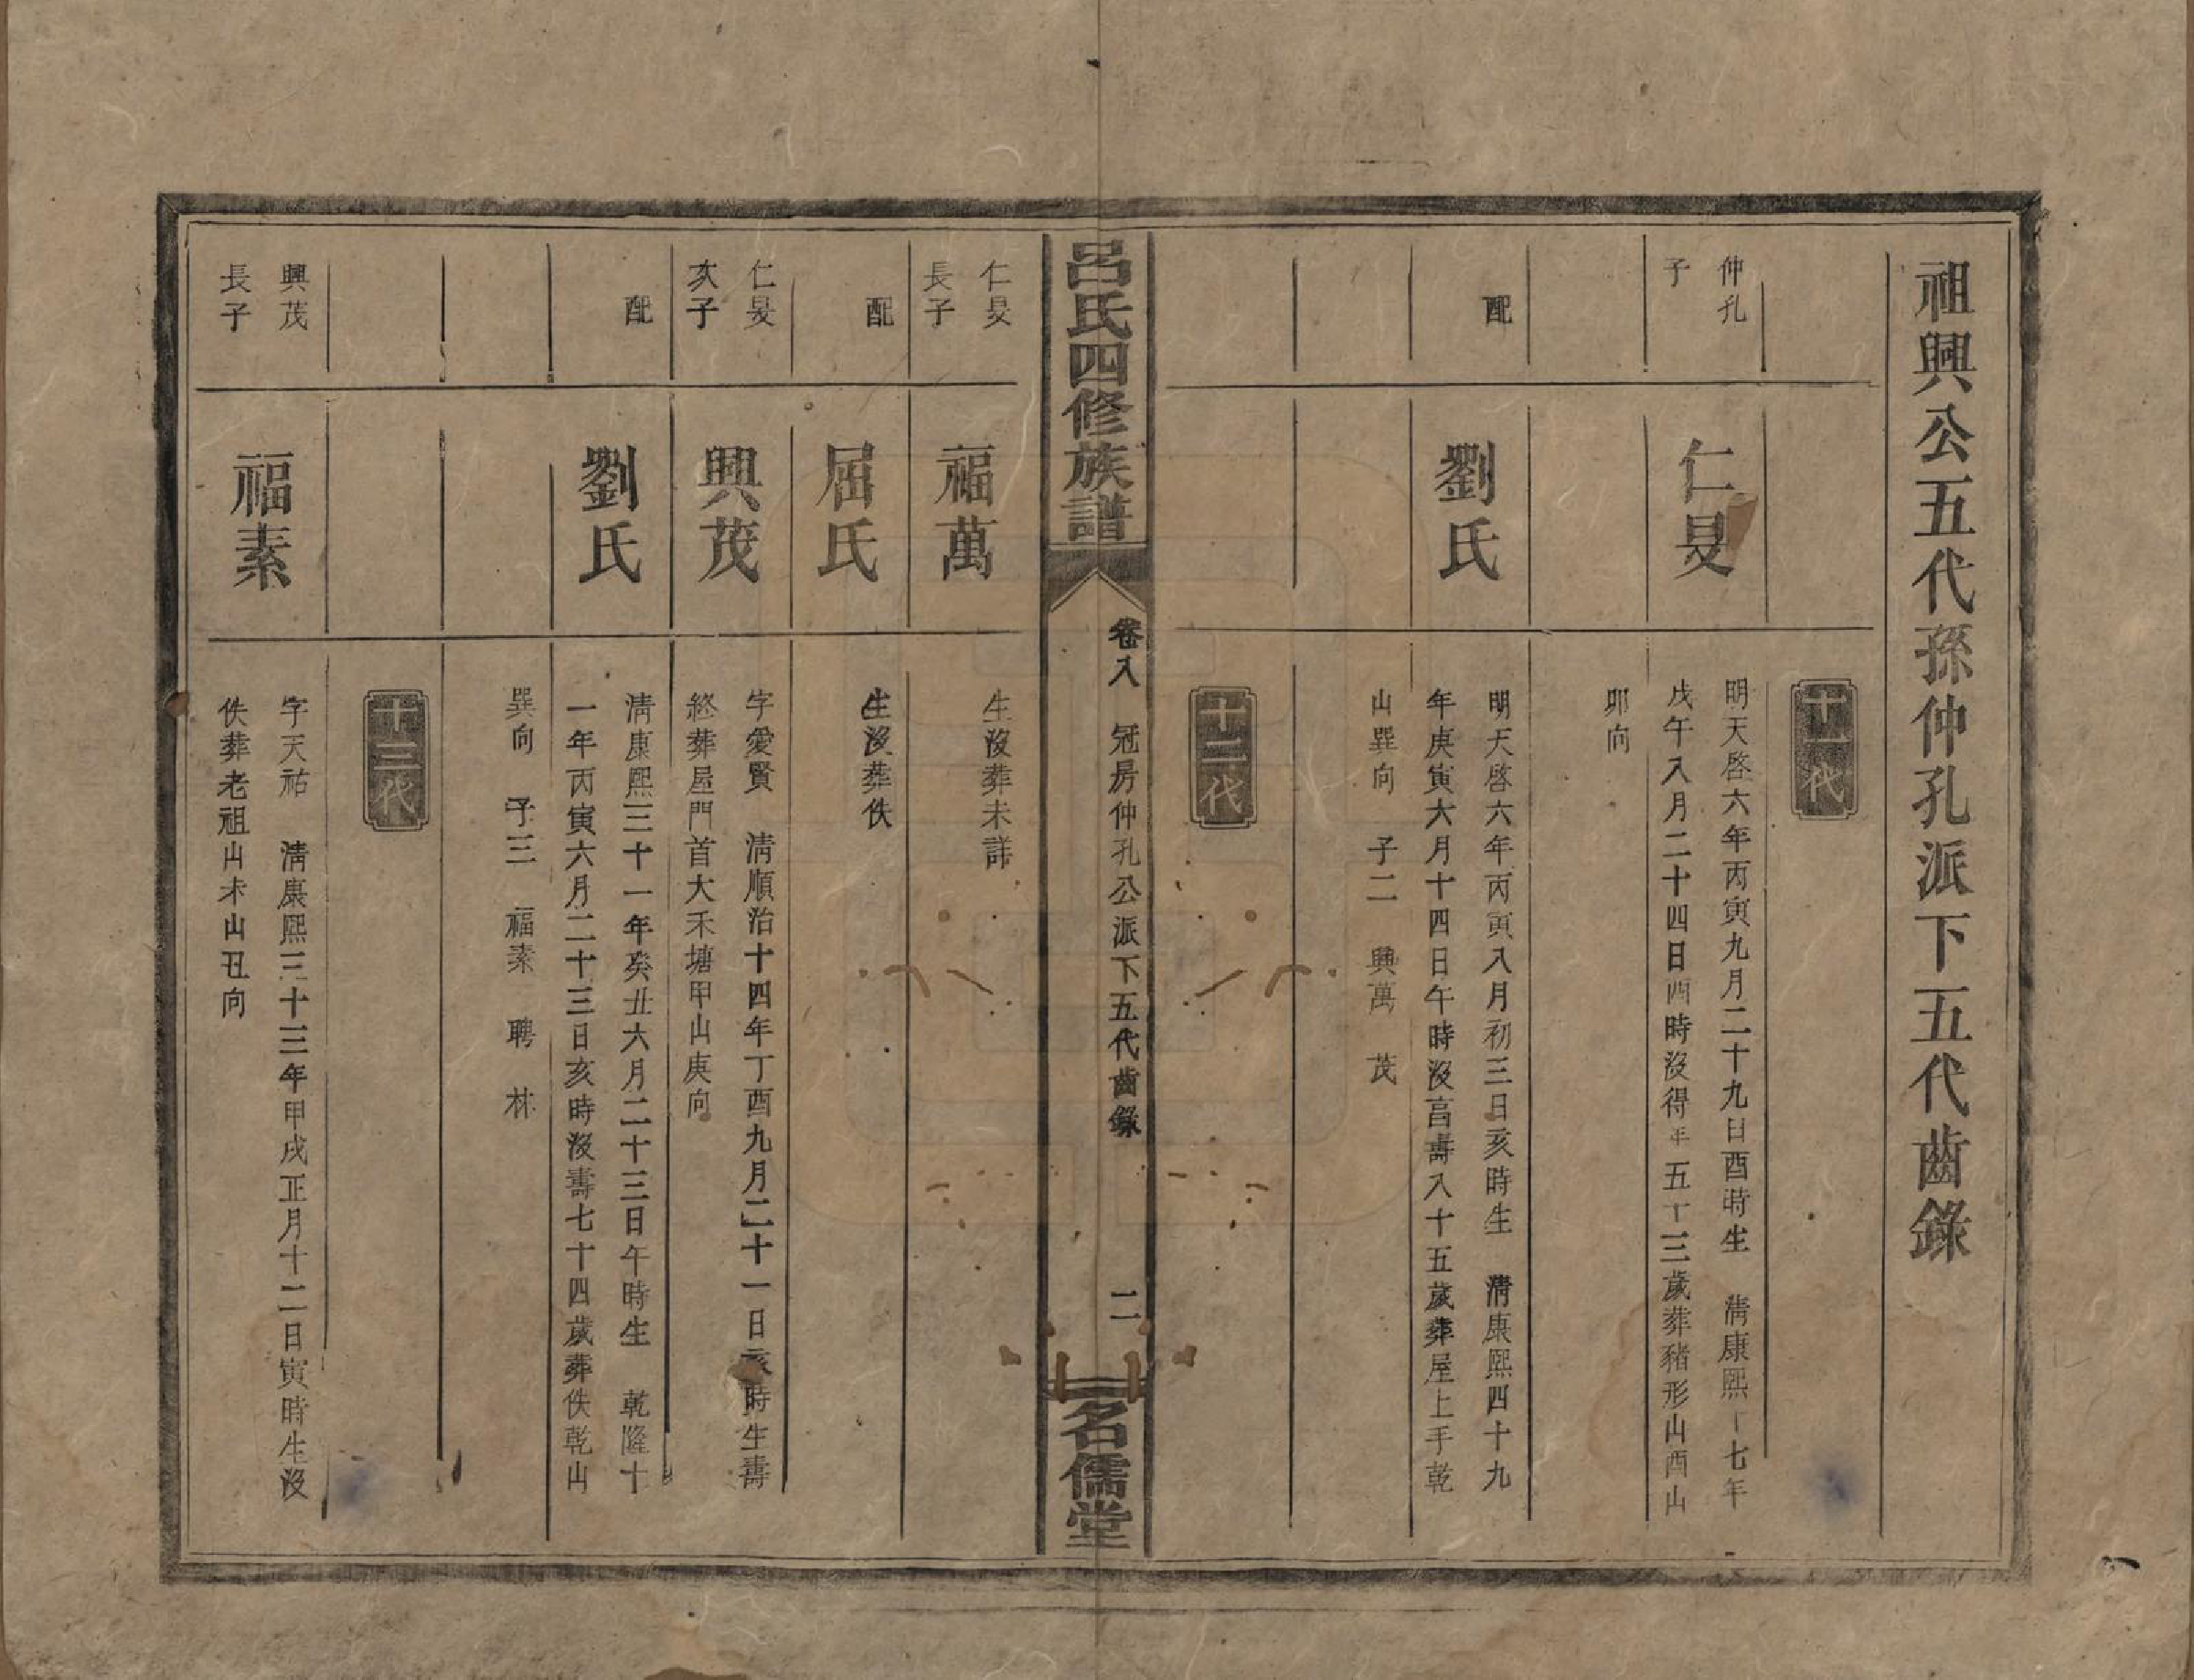 祖興公五代孫仲孔派下五代齒錄
十一代
仲孔
子
仁旻
明天啓六年丙寅九月二十九日酉時生　清康熙十七年
戊午八月二十四日酉時沒得年五十三歲葬豬形山酉山
卯向
配
劉氏
明天啓六年丙寅八月初三日亥時生　清康熙四十九
年庚寅六月十四日午時沒享壽八十五歲葬屋上手乾
山巽向　子二　興萬　茂
十二代
呂氏四修族譜
卷八　冠房仲孔公派下五代齒錄
二
名儒堂
仁旻
長子
福萬
生沒葬未詳
配
屈氏
生沒葬佚
仁旻
次子
興茂
字愛賢　清順治十四年丁酉九月二十一日亥時生壽
終葬屋門首大禾塘甲山庚向
配
劉氏
清康熙三十一年癸丑六月二十三日午時生　乾隆十
一年丙寅六月二十三日亥時沒壽七十四歲葬佚乾山
巽向　子三　福素　聘　林
十三代
興茂
長子
福素
字天祐　清康熙三十三年甲戌正月十二日寅時生沒
佚葬老祖山未山丑向